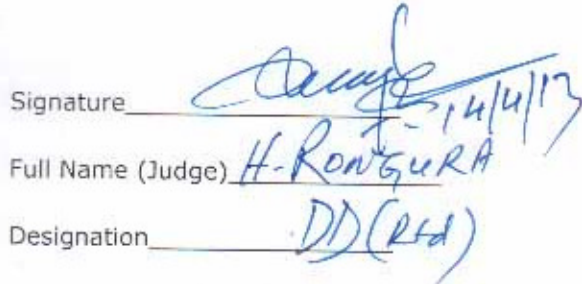 Signature 14/4/13
Full Name (Judge) H. RONGURA
Designation DD (Rtd)